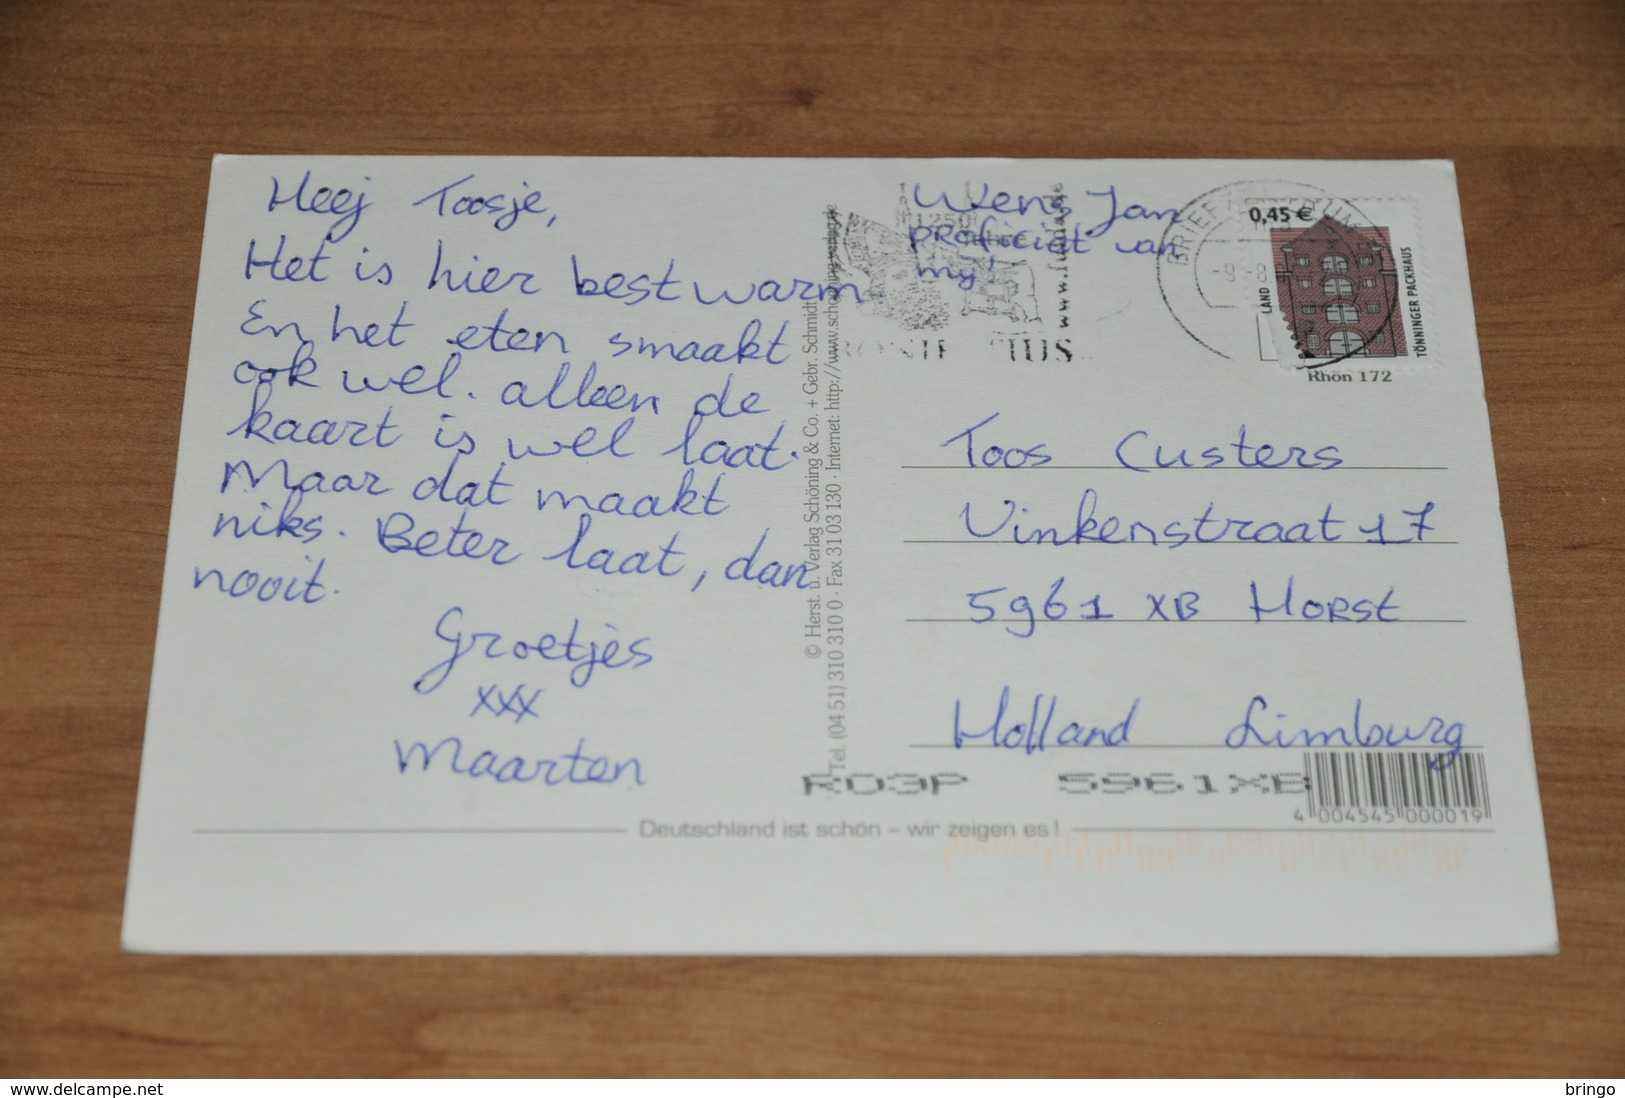 Heej Toosje,
Het is hier best warm.
En het eten smaakt
ook wel. alleen de
kaart is wel laat.
Maar dat maakt
niks. Beter laat, dan
nooit.
Groetjes
xxx
Maarten
© Herst. u. Verlag Schöning & Co. + Gebr. Schmidt
Tel. (04 51) 310 310 0 · Fax 31 03 130 · Internet: http://www.schoening-verlag.de
Wens Jan
proficiat van
my!
1250
www.fulda.de
BRIEFZENTRUM
0,45 €
TÖNNINGER PACKHAUS
LAND
Rhön 172
Toos Custers
Vinkenstraat 17
5961 XB Horst
Holland Limburg
R03P 5961XB
4 004545 000019
Deutschland ist schön – wir zeigen es!
delcampe.net
bringo